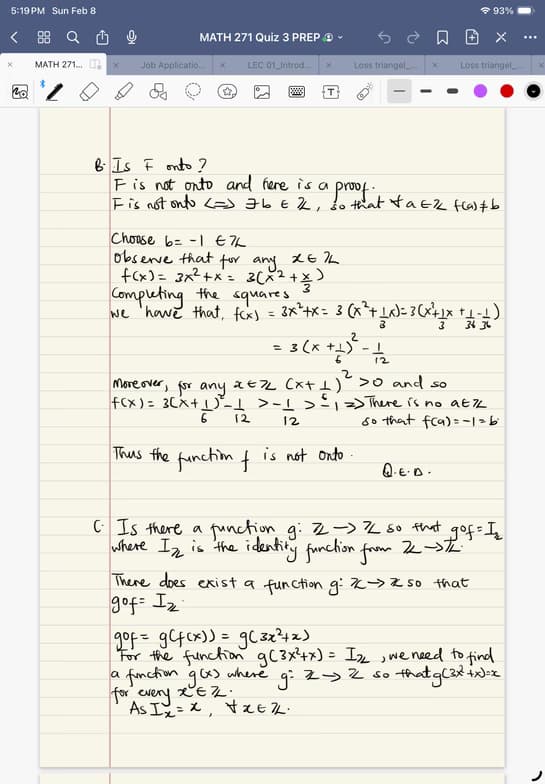 5:19 PM Sun Feb 8
93%
MATH 271 Quiz 3 PREP
MATH 271...
Job Applicatio...
LEC 01_Introd...
Loss triangel_...
Loss triangel_...
B. Is F onto?
F is not onto and here is a proof.
F is not onto <=> ∃b ∈ ℤ, so that ∀a∈ℤ f(a)≠b
Choose b= -1 ∈ℤ
Observe that for any x∈ℤ
f(x) = 3x²+x = 3(x²+x/3)
Completing the squares
we have that, f(x) = 3x²+x = 3(x²+1/3x)=3(x²+1/3x+1/36-1/36)
= 3(x+1/6)²-1/12
Moreover, for any x∈ℤ (x+1/6)²>0 and so
f(x) = 3(x+1/6)²-1/12 >-1/12 >-1 => There is no a∈ℤ
so that f(a)=-1=b
Thus the function f is not onto.
Q.E.D.
C. Is there a function g: ℤ→ℤ so that gof=Iℤ
where Iℤ is the identity function from ℤ→ℤ.
There does exist a function g: ℤ→ℤ so that
gof= Iℤ
gof = g(f(x)) = g(3x²+x)
For the function g(3x²+x) = Iℤ, we need to find
a function g(x) where g: ℤ→ℤ so that g(3x²+x)=x
for every x∈ℤ.
As Iℤ=x, ∀x∈ℤ.